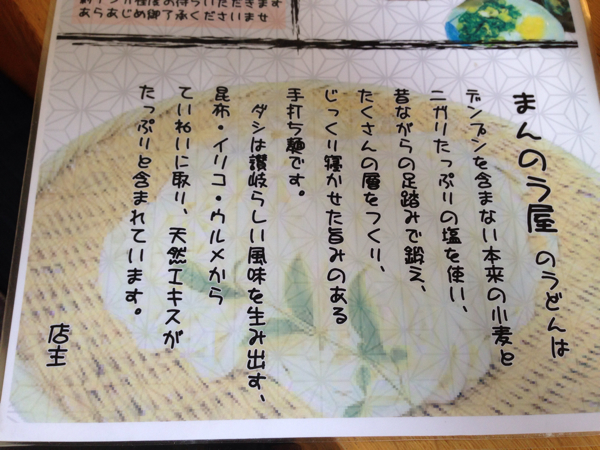 約十分程度お待ちいただきます
あらあじめ御了承くださいませ
まんのう屋のうどんは
デンプンを含まない本来の小麦と
ニガリたっぷりの塩を使い、
昔ながらの足踏みで鍛え、
たくさんの層をつくり、
じっくり寝かせた旨みのある
手打ち麺です。
ダシは讃岐らしい風味を生み出す、
昆布・イリコ・ウルメから
ていねいに取り、天然エキスが
たっぷりと含まれています。
店主